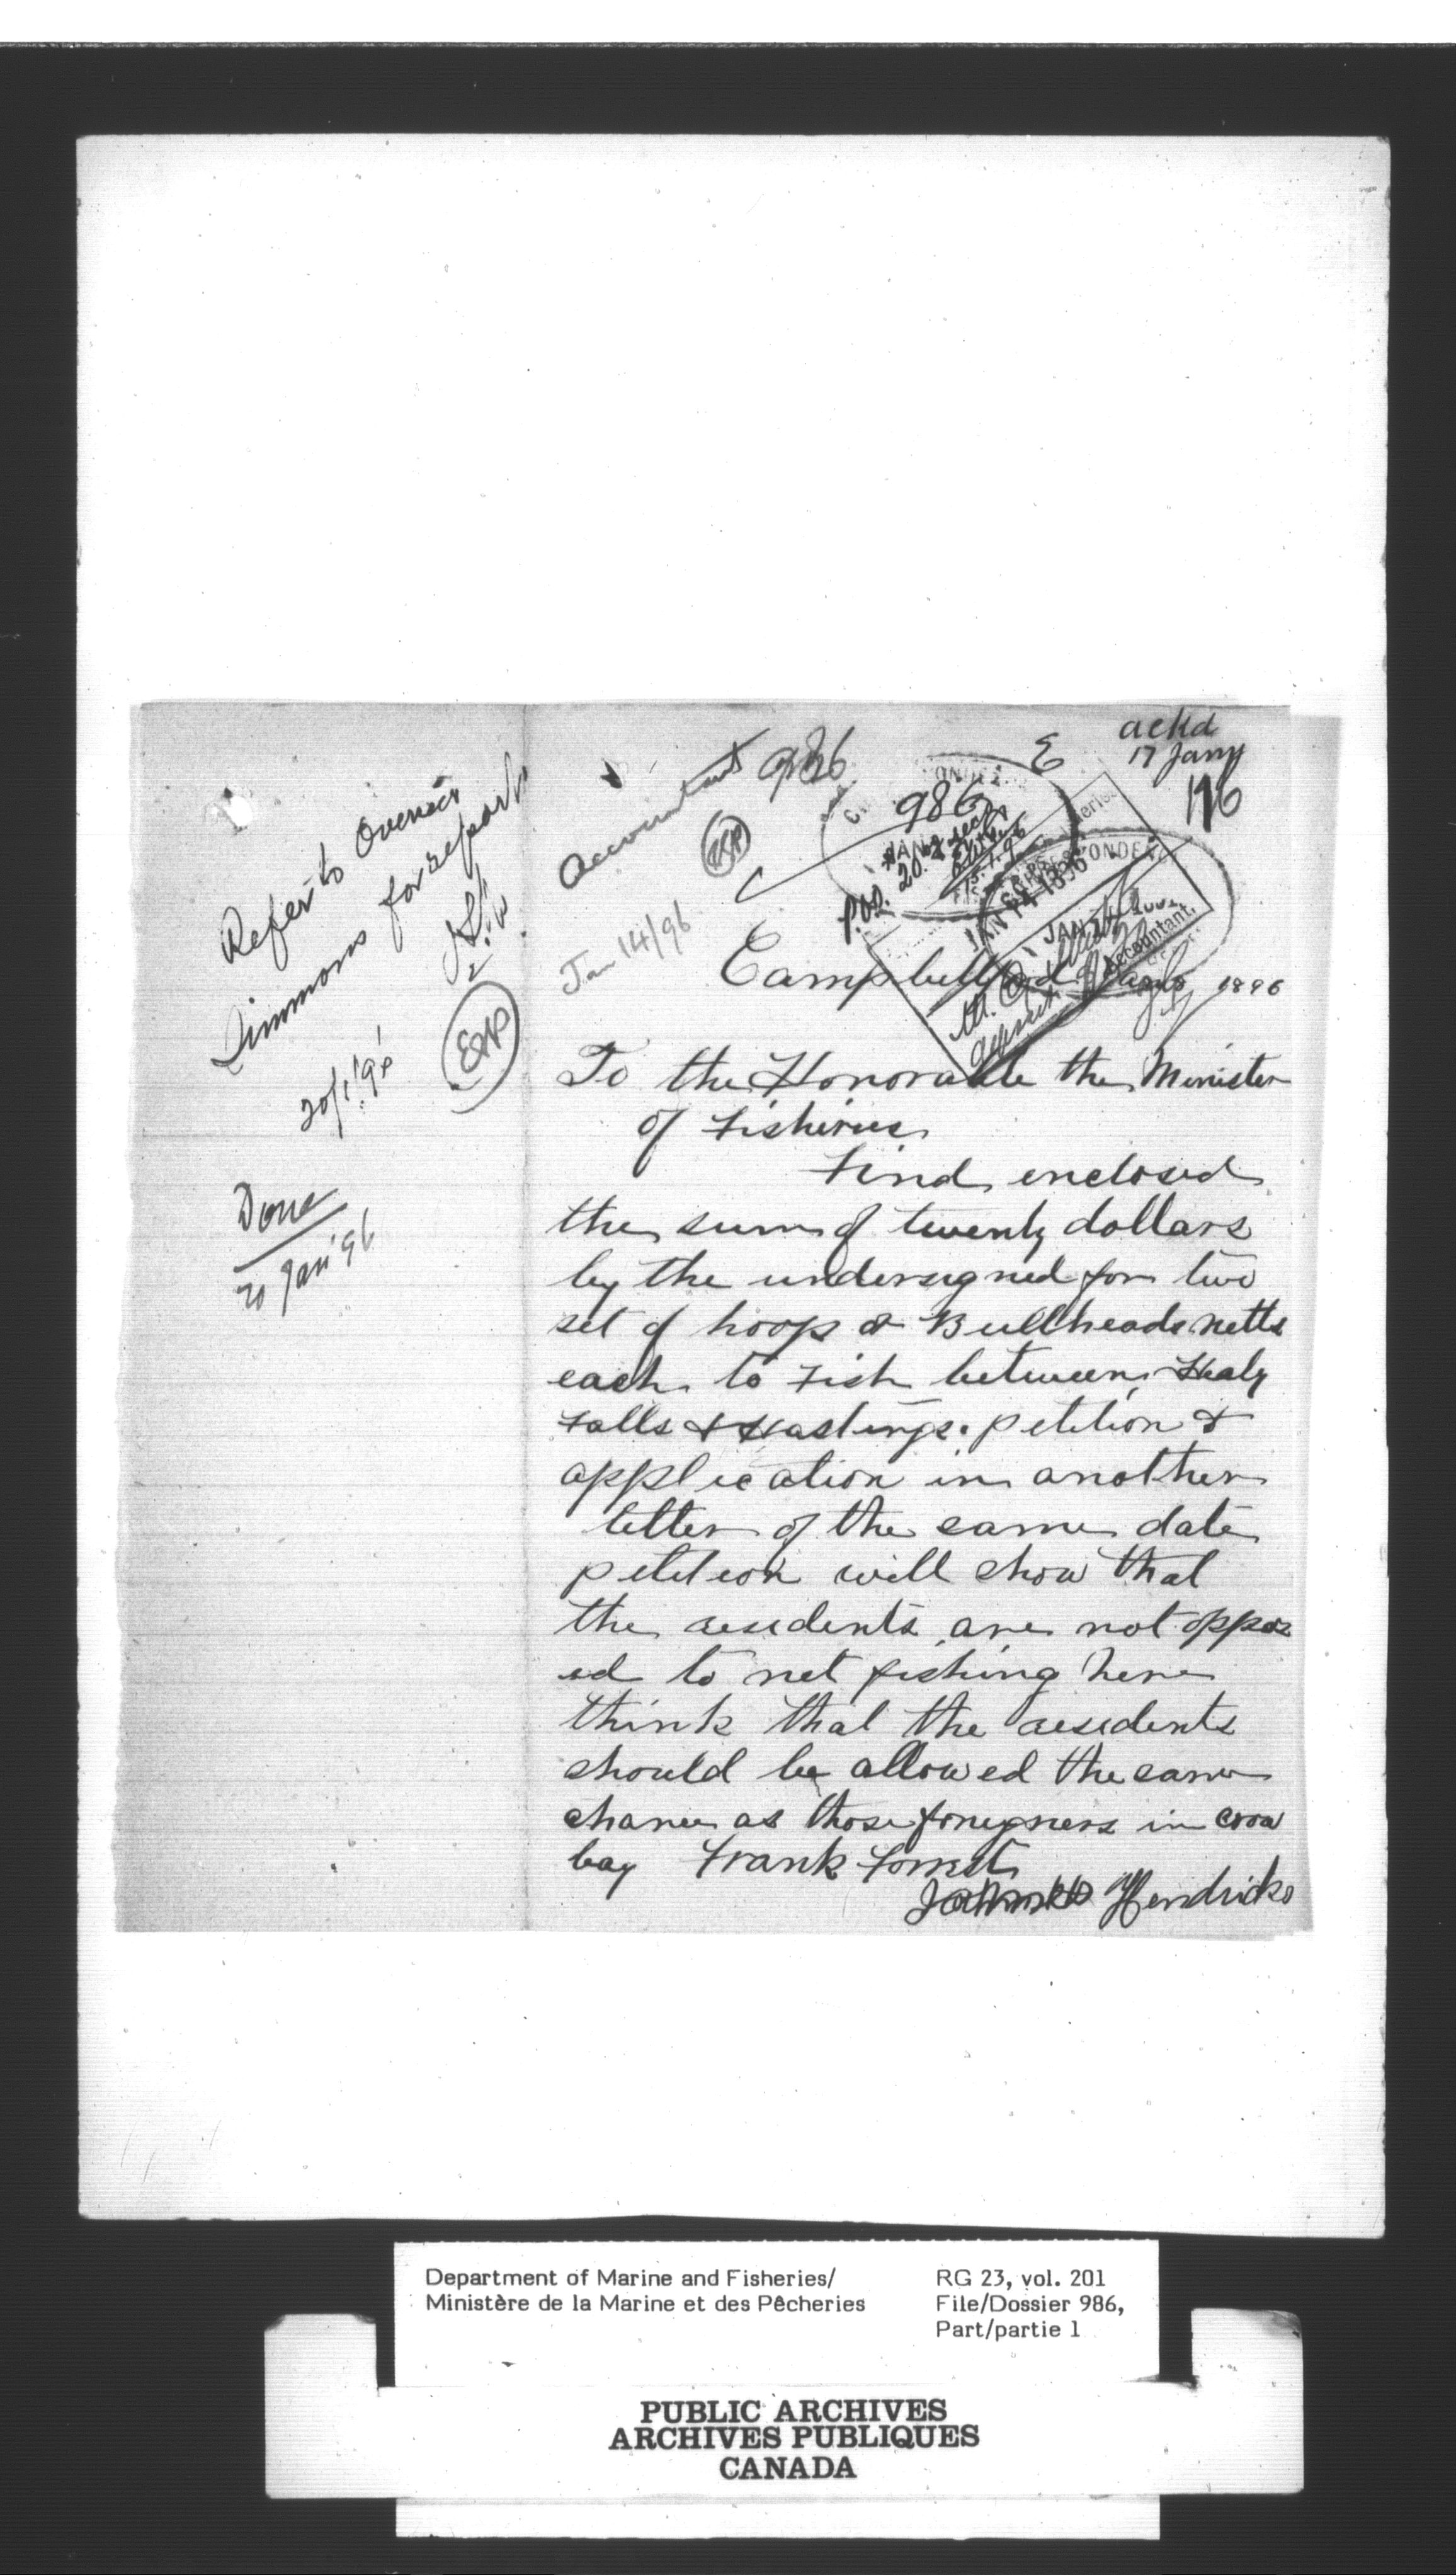 Refer to Overseer
Simmons for report
20/1/96
Done
20 Jan' 96
Accountant 986
Jan 14/96
E
ackd
17 Jany
196
986
JAN 14 1896
Accountant.
Campbellford 1896
To the Honorable the Minister
of Fisheries
Find enclosed
the sum of twenty dollars
by the undersigned for two
set of hoop & Bullheads netts
each to Fish between Healy
Falls & Hastings. petition &
application in another
letter of the same date
petition will show that
the residents are not oppos
ed to net fishing here
think that the residents
should be allowed the same
chance as those foregners in croa
bay Frank Forrest
Hendricks
Department of Marine and Fisheries/
Ministère de la Marine et des Pêcheries
RG 23, vol. 201
File/Dossier 986,
Part/partie 1
PUBLIC ARCHIVES
ARCHIVES PUBLIQUES
CANADA